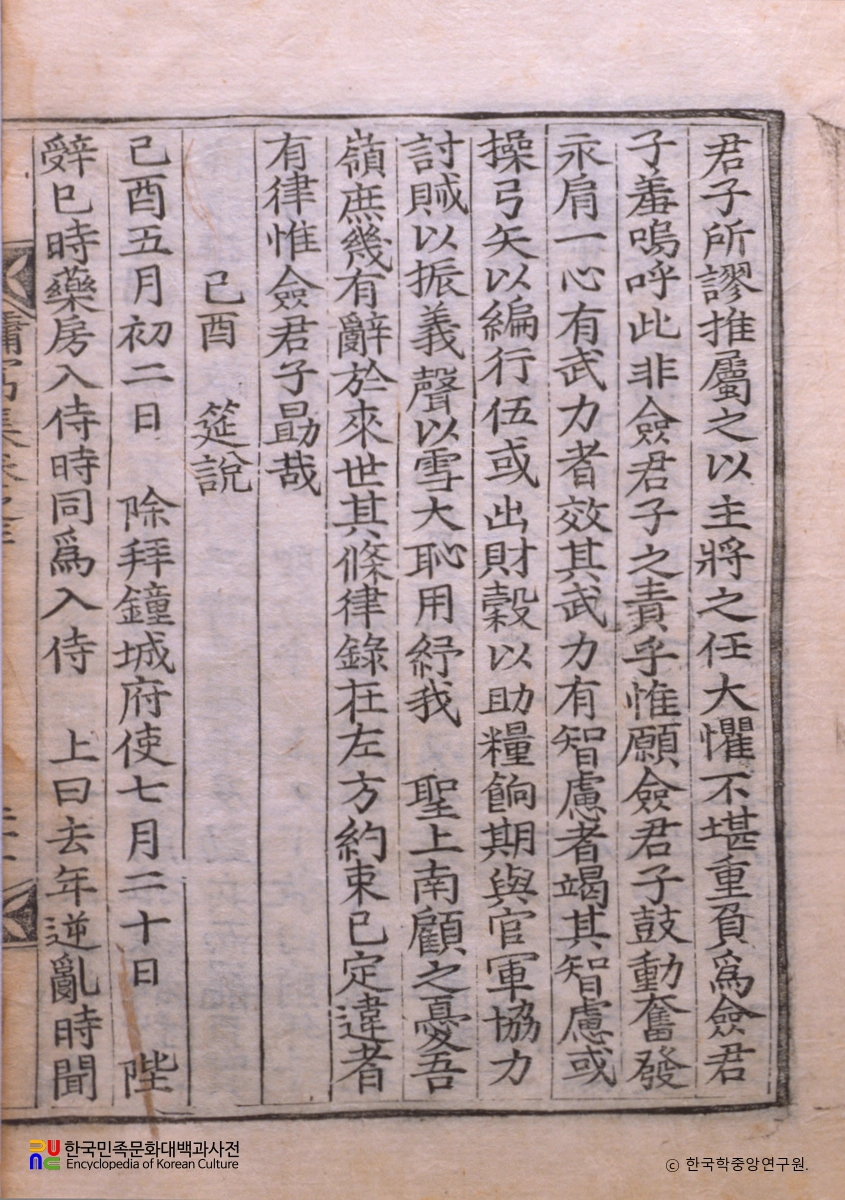 君子所謬推屬之以主將之任大懼不堪重負爲僉君
子羞嗚呼此非僉君子之責乎惟願僉君子鼓動奮發
永肩一心有武力者效其武力有智慮者竭其智慮或
操弓矢以編行伍或出財穀以助糧餉期與官軍協力
討賊以振義聲以雪大恥用紓我 聖上南顧之憂吾
嶺庶幾有辭於來世其條律錄在左方約束已定違者
有律惟僉君子勖哉
己酉 筵說
己酉五月初二日 除拜鐘城府使七月二十日 陛
辭巳時藥房入侍時同爲入侍 上曰去年逆亂時聞
한국민족문화대백과사전
Encyclopedia of Korean Culture
ⓒ 한국학중앙연구원.